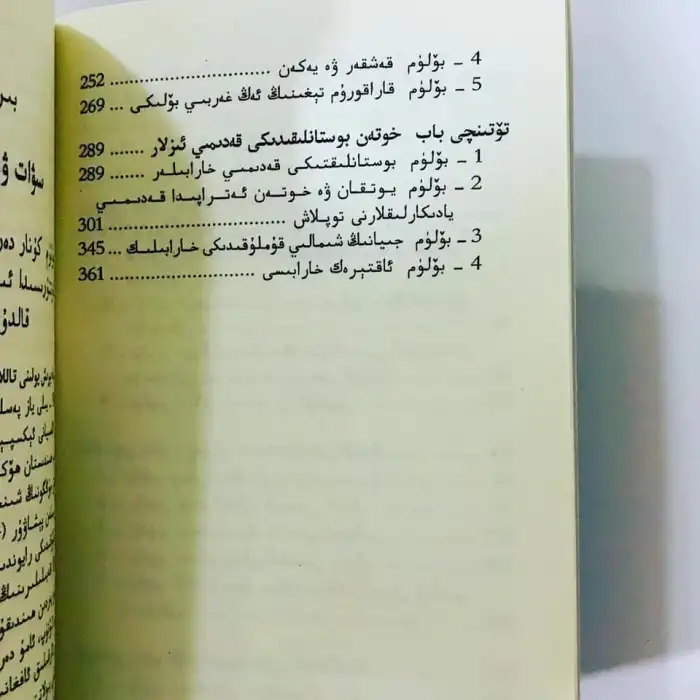 4 – بۆلۈم قەشقەر ۋە يەكەن ................... 252
5 – بۆلۈم قاراقورۇم تېغىنىڭ ئەڭ غەربىي بۆلىكى ... 269
تۆتىنچى باب خوتەن بوستانلىقىدىكى قەدىمىي ئىزلار ....... 289
1 – بۆلۈم بوستانلىقتىكى قەدىمىي خارابىلەر ....... 289
2 – بۆلۈم يوتقان ۋە خوتەن ئەتراپىدا قەدىمىي
يادىكارلىقلارنى توپلاش ......................... 301
3 – بۆلۈم جىيانىڭ شىمالىي قۇملۇقىدىكى خارابىلىك ... 345
4 – بۆلۈم ئاقتېرەك خارابىسى ........................ 361
سۋات ۋ
كۇنار دەر
قالدۇ
يولىنى تاللا
يىلى ياز پەسلى
پىشاۋۇر )
ئامۇ دەر